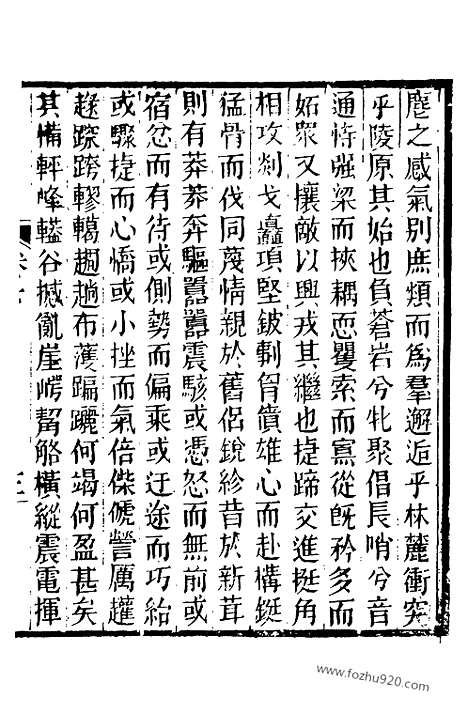 麀之感氣別庶類而爲羣邂逅乎林麓衝突
乎陵原其始也負蒼岩兮牝聚倡長哨兮音
通恃强梁而挾耦恧矍索而寡從旣矜多而
妬衆又攘敵以興戎其繼也捷蹄交進挺角
相攻剡戈矗項堅鈹剸胷僨雄心而赴構鋌
猛骨而伐同蔑情親於舊侶銳紾昔於新茸
則有莽莽奔驅囂囂震駭或憑怒而無前或
宿忿而有待或側勢而偏乘或迂途而巧紿
或驟捷而心憍或小挫而氣倍傑虒謍厲趯
趮跨轇轕趨趫布濩蹁躧何竭何盈甚矣
其備軯峰轠谷撼亂崖崿觺觡橫縱震電揮
卷十
三
www.fozhu920.com